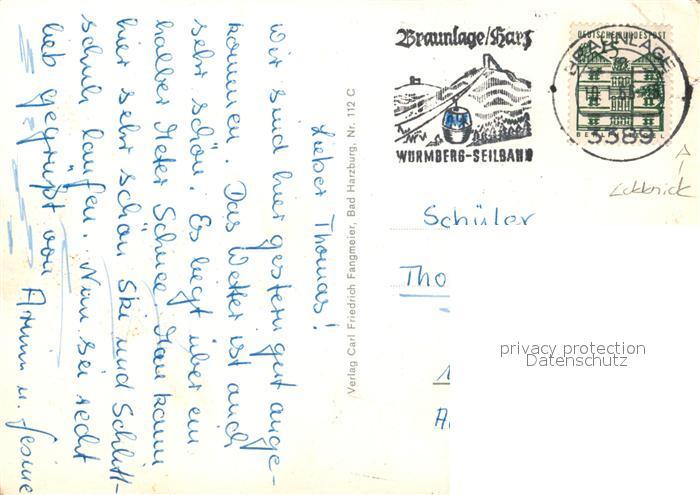 Lieber Thomas!
Wir sind hier gestern gut ange-
kommen. Das Wetter ist auch
sehr schön. Es liegt über ein
halber Meter Schnee. Man kann
hier sehr schön Ski und Schlitt-
schuh laufen. Nun sei recht
lieb gegrüßt von Armin u. Gesine
Verlag Carl Friedrich Fangmeier, Bad Harzburg, Nr. 112 C
Braunlage/Harz
WURMBERG-SEILBAHN
DEUTSCHE BUNDESPOST
BRAUNLAGE
3389
Schüler
Tho
privacy protection
Datenschutz